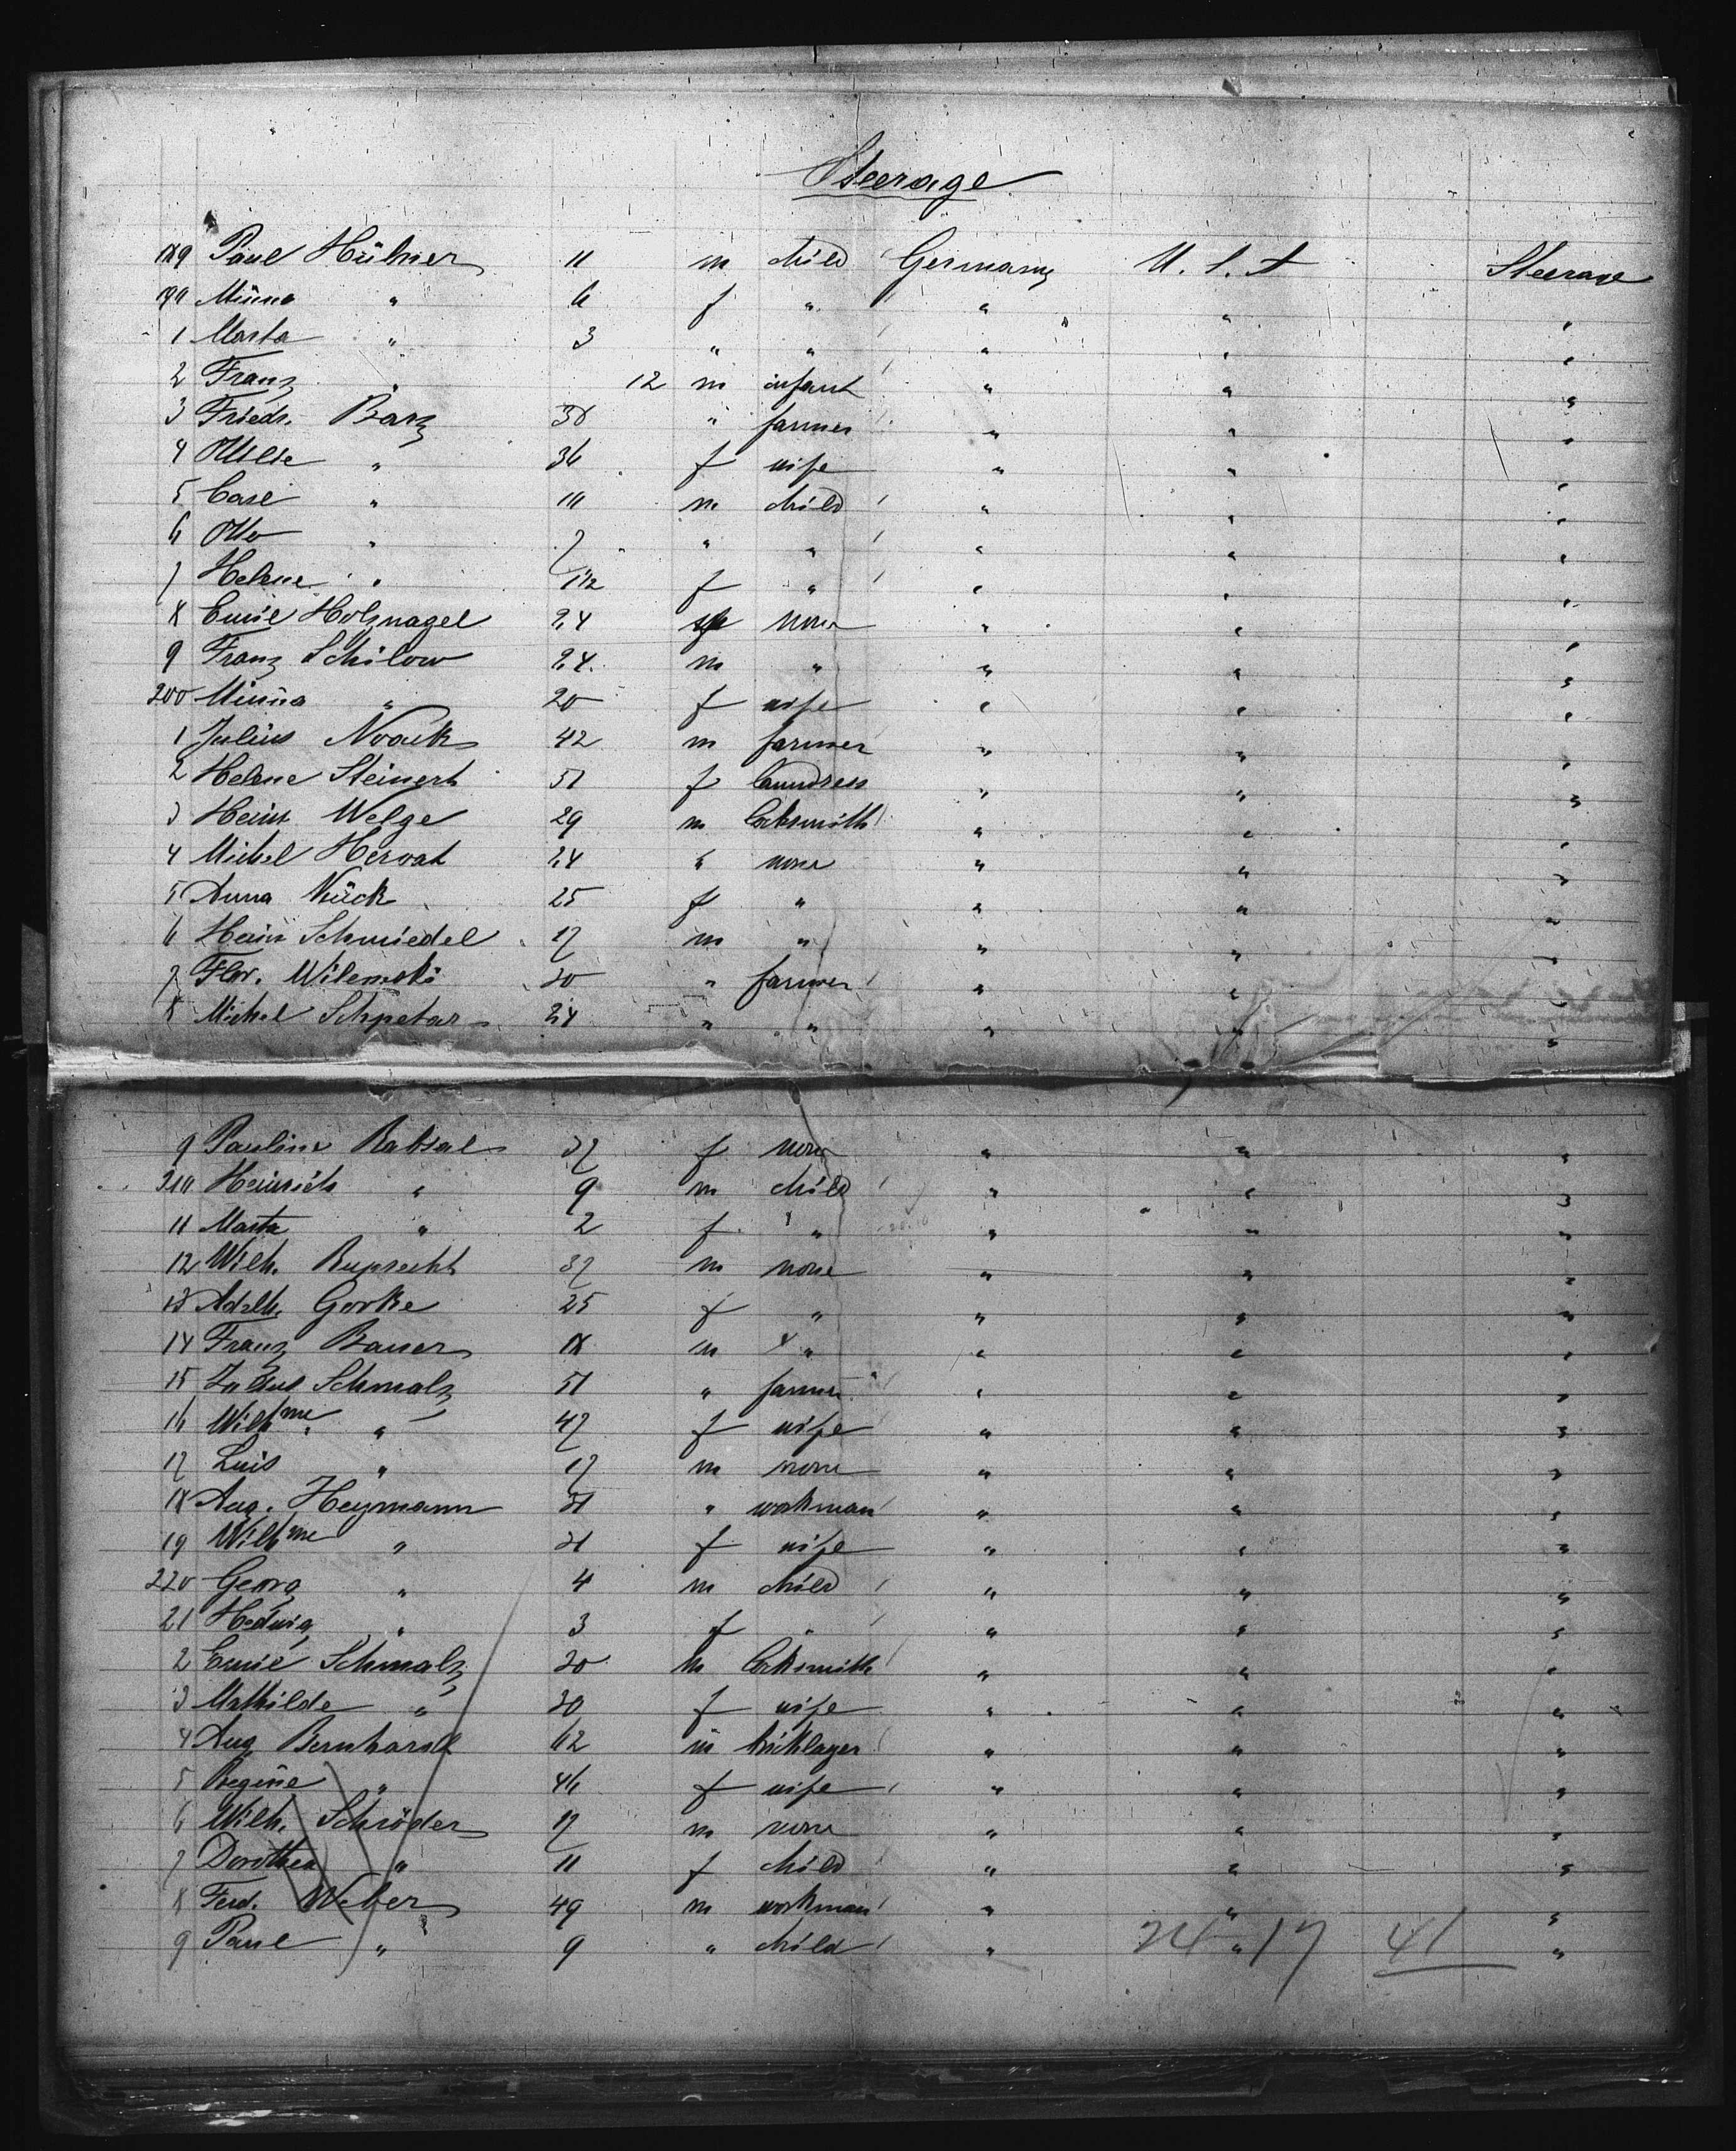 Steerage
189 Paul Hübner 11 m child Germany U. S. A Steerage
190 Minna " 6 f " " " "
1 Marta " 3 " " " " "
2 Franz " 12 m infant " " "
3 Friedr. Barz 38 " farmer " " "
4 Ottilie " 36 f wife " " "
5 Carl " 10 m child " " "
6 Otto " 7 " " " " "
7 Helene " 1 1/2 f " " " "
8 Emil Holznagel 24 none " " "
9 Franz Schilow 24 m " " " "
200 Minna " 20 f wife " " "
1 Julius Noack 42 m farmer " " "
2 Helene Steinert 51 f laundress " " "
3 Heinr. Welge 29 m locksmith " " "
4 Michel Hervat 24 " none " " "
5 Anna Kück 25 f " " " "
6 Heinr Schmiedel 17 m " " " "
7 Flor. Wilemski 20 " farmer " " "
8 Michel Schpetar 24 " " " " "
9 Pauline Rabsal 37 f none " " "
210 Heinrich " 9 m child " " "
11 Marta " 2 f " " " "
12 Wilh. Ruprecht 37 m none " " "
13 Adelh. Gorke 25 f " " " "
14 Franz Bauer 18 m " " " "
15 Julius Schmalz 51 " farmer " " "
16 Wilhme " 47 f wife " " "
17 Luis " 17 m none " " "
18 Aug. Heymann 31 " workman " " "
19 Wilhme " 31 f wife " " "
220 Georg " 4 m child " " "
21 Hedwig " 3 f " " " "
2 Emil Schmalz 30 m locksmith " " "
3 Mathilde " 30 f wife " " "
4 Aug Bernhardt 62 m bricklayer " " "
5 Regine " 46 f wife " " "
6 Wilh. Schröder 17 m none " " "
7 Dorothea " 11 f child " " "
8 Ferd. Weber 49 m workman " " "
9 Paul " 9 " child " " "
24 17 41